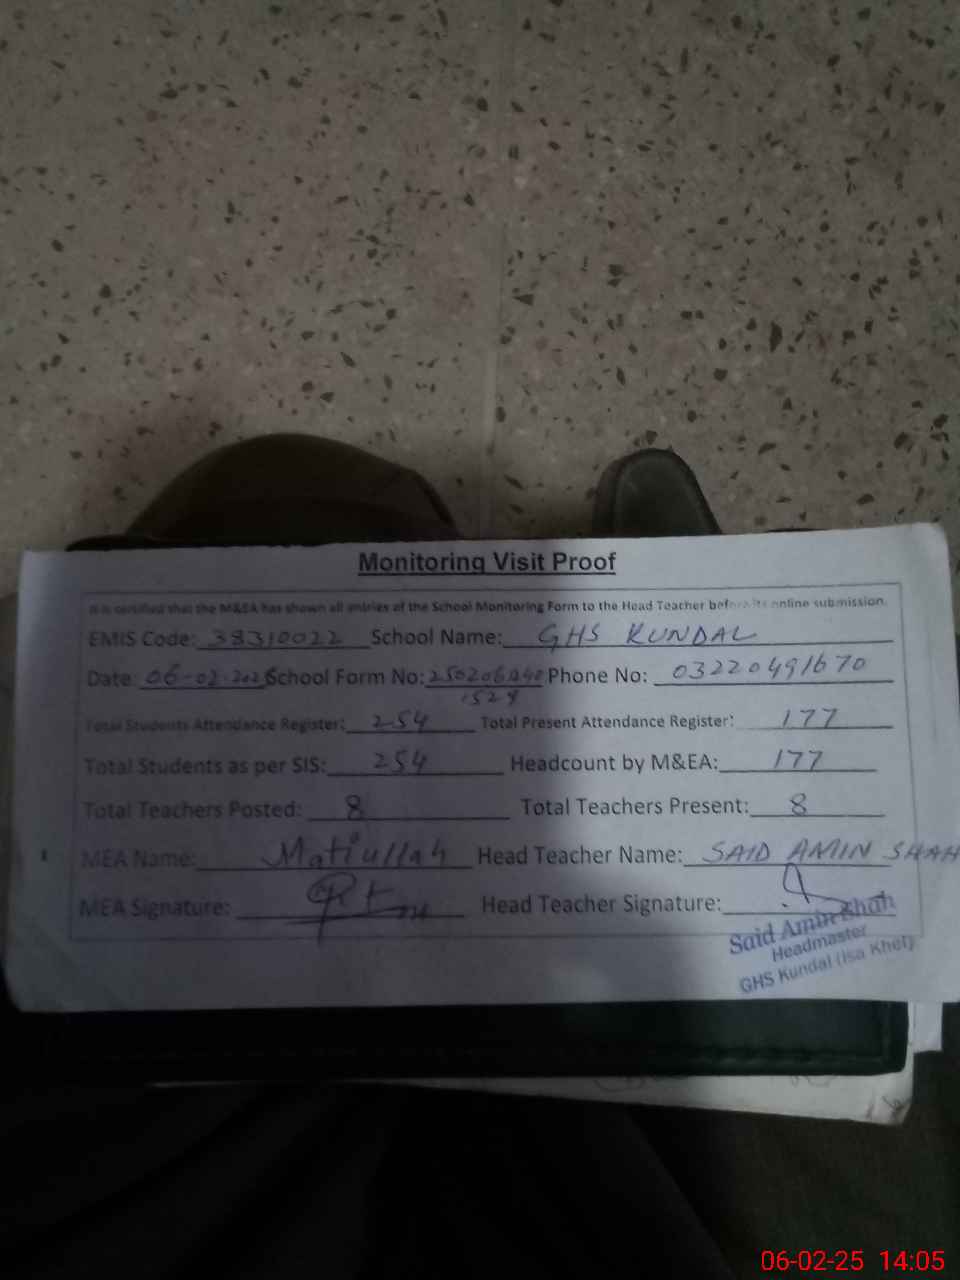 Monitoring Visit Proof
It is certified that the M&EA has shown all entries of the School Monitoring Form to the Head Teacher before its online submission.
EMIS Code: 38310022 School Name: GHS KUNDAL
Date: 06-02-2025 School Form No: 250206040 Phone No: 03220491670
1528
Total Students Attendance Register: 254 Total Present Attendance Register: 177
Total Students as per SIS: 254 Headcount by M&EA: 177
Total Teachers Posted: 8 Total Teachers Present: 8
MEA Name: Matiullah Head Teacher Name: SAID AMIN SHAH
MEA Signature: Head Teacher Signature:
Said Amin Shah
Headmaster
GHS Kundal (Isa Khel)
06-02-25 14:05